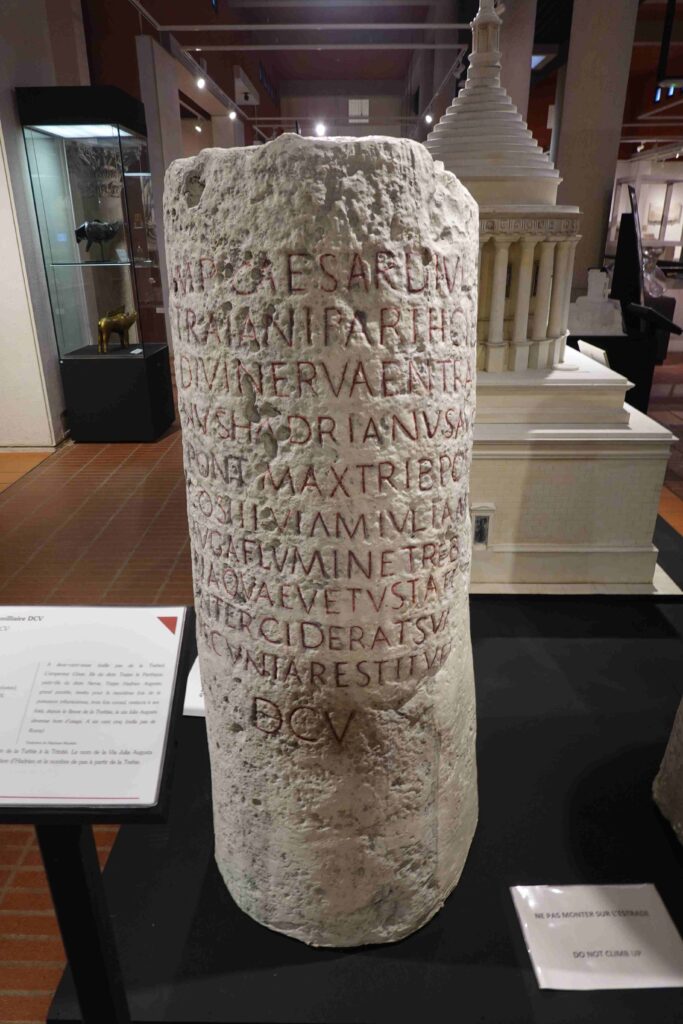 MP CAESAR DIVI
TRAIANI PARTHC
DIVI NERVAE N TRA
HADRIANVS A
PONT MAX TRIB PO
COS III VIAM IVLIAM
VGA FLVMINE TREB
QVAE VETVSTA
INTERCIDERAT SVA
CVNIA RESTITVI
DCV
milliaire DCV
DCV
A deux-cent-seize (mille pas de la Trebie)
L'empereur César, fils du divin Trajan le Parthique
petit-fils du divin Nerva, Trajan Hadrien Auguste
grand pontife, revêtu pour la
puissance tribunicienne, trois fois consul, restaura à ses
frais, depuis le fleuve de la Trebbia, la via Julia Augusta
devenue hors d'usage. A six cent cinq (mille pas de
Rome)
de la Turbie à la Trebbia. Le nom de la Via Julia Augusta
d'Hadrien et le nombre de pas à partir de la Trebie.
NE PAS MONTER SUR L'ESTRADE
DO NOT CLIMB UP